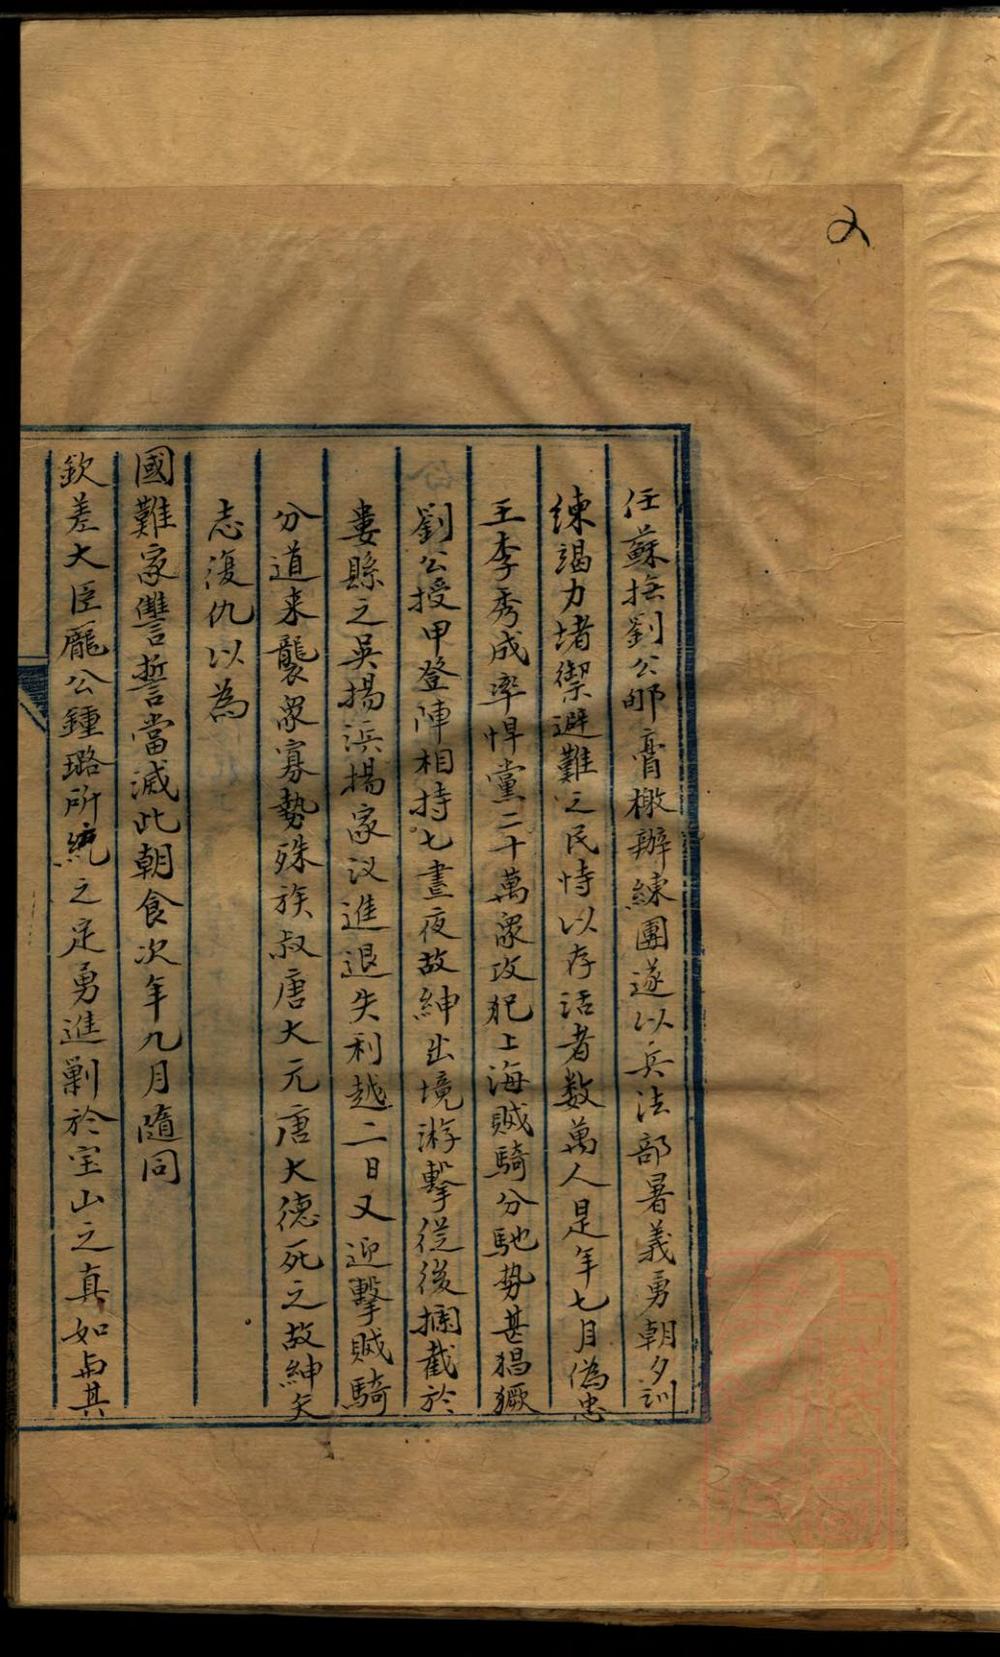 任蘇撫劉公郇膏檄辦練團遂以兵法部署義勇朝夕訓
練竭力堵禦避難之民恃以存活者数萬人是年七月偽忠
王李秀成率悍黨二十萬衆攻犯上海贼騎分馳势甚猖獗
劉公授甲登陣相持七晝夜故紳出境游擊從後攔截於
婁縣之吳揚浜揚家汊進退失利越二日又迎擊贼騎
分道来襲衆寡勢殊族叔唐大元唐大德死之故紳矢
志復仇以為
國難家讐誓當滅此朝食次年九月隨同
欽差大臣龐公鍾璐所統之定勇進剿於宝山之真如與其